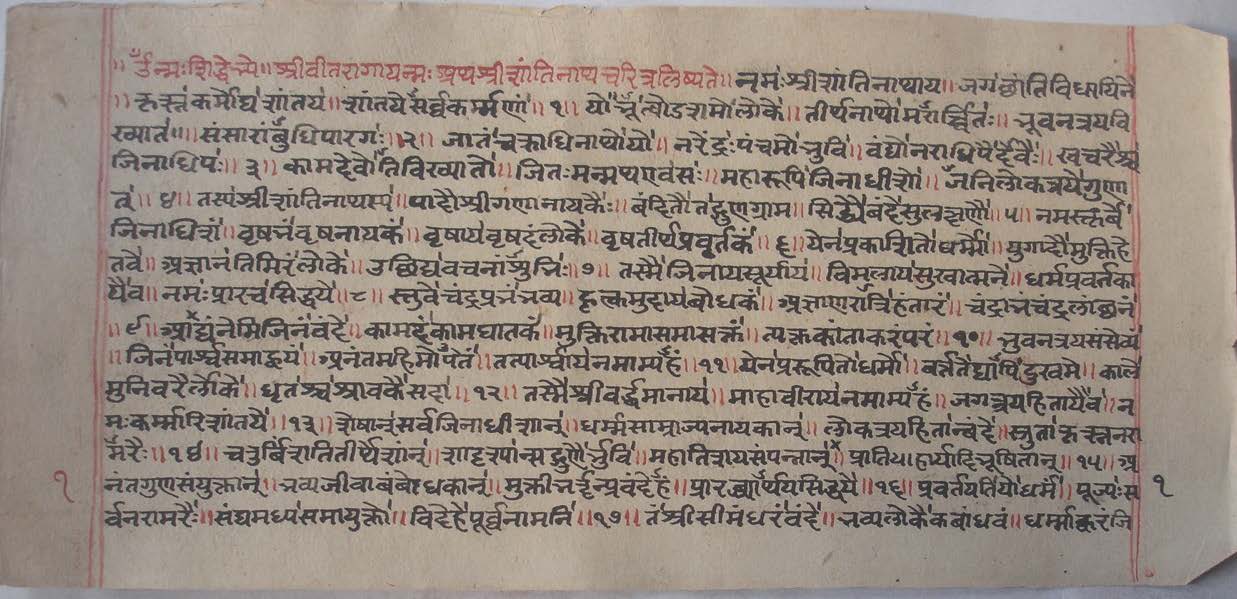 ॥ ॐ नमः सिद्धेभ्यो ॥ श्रीवीतरागायन्मः अथ श्रीशांतिनाथचरित्र लिष्यते ॥ नमः श्रीशांतिनाथाय ॥ जगछांतिविधायिने
॥ कृत्स्नकर्मौघशांतय ॥ शांतये सर्वकर्म्मणां ॥ १ ॥ यो लोके ॥ तीर्थनाथो मरार्च्चितः ॥ भूवनत्रयवि
ख्यात ॥ संसारांबुधिपारगः ॥ २ ॥ जातं चक्राधिनाथो यो ॥ नरेंद्रः पंचमो भुवि ॥ वंद्यो नराधिपैर्देवैः ॥ खचरै
जिनाधिपः ॥ ३ ॥ कामदेवो तिविख्यातो ॥ जितः मन्मथ एव सः ॥ महारूपि जिनाधीशो ॥ लोकत्रयैगुण
४ ॥ तस्य श्रीशांतिनाथस्य ॥ पादौ श्रीगणनायकैः ॥ वंदितौ तद्गुणग्राम ॥ सिद्ध्यै वंदे सुलक्षणौ ॥ ५ ॥ नमस्कुर्वे
जिनाधिशं ॥ वृषभं वृषनायकं ॥ वृषाय वृषदं लोके ॥ वृषतीर्थप्रवृर्तकं ॥ ६ ॥ येन प्रकाशितो धर्म्मो ॥ युगादौ मुक्तिहे
तवे ॥ अज्ञानतिमिरं लोके ॥ उछिद्य वचनांशुभिः ॥ ७ ॥ तस्मै जिनाय सूर्याय ॥ विमलाय सुखात्मने ॥ धर्मप्रवर्तका
यैव ॥ नमः प्रारब्धसिद्धये ॥ ८ ॥ स्तुवे चंद्रप्रभं भव्य ॥ हृत्कमुदायबोधकं ॥ अज्ञाणरात्रिहंतारं ॥ चंद्राभ चंद्रलांछनं
॥ ९ ॥ नेमिजिनं वंदे ॥ कामदं कामघातकं ॥ मुक्तिरामासमासक्तं ॥ त्यक्तकांताकरं परं ॥ १० ॥ भुवनत्रयसंसेव्य
॥ जिनं पार्श्वसमाह्वयं ॥ अनंतमहिमोपेतं ॥ तत्पार्श्वाय नमाम्यहं ॥ ११ ॥ येन प्ररूपितो धर्मो ॥ वर्त्तते द्यापि दुखमे ॥ काले
मुनिवरैर्लोके ॥ धृतश्च श्रावकै सदा ॥ १२ ॥ तस्मै श्रीवर्द्धमानाय ॥ माहावीराय नमाम्यहं ॥ जगत्त्रयहितायैव ॥ न
मः कर्म्मारिशांतयै ॥ १३ ॥ शेषान् सर्वजिनाधीशान् ॥ धर्म्मसाम्राज्यनायकान् ॥ लोकत्रयहितान्वंदे ॥ स्तुता कृत्स्ननरा
मरैः ॥ १४ ॥ चतुर्विंशतितीर्थेशांन् ॥ भुवि ॥ महातिशयसपन्नान् ॥ प्रातिहार्यादिभूषितान् ॥ १५ ॥ अ
१ नंतगुणसंयुक्तान् ॥ भव्यजीवाबंबोधकान् ॥ मुक्तीभर्तृन्प्रवंदेहं ॥ प्रारब्धार्थयसिद्धये ॥ १६ ॥ प्रवर्तयति यो धर्म ॥ पूज्यः स १
र्वनरामरैः ॥ संघमध्यसमायुक्तो ॥ विदेहे पूर्व्वनामनि ॥ १७ ॥ तं श्रीसीमंधरं वंदे ॥ भव्यलोकैकबांधवं ॥ धर्म्माकुरं जि